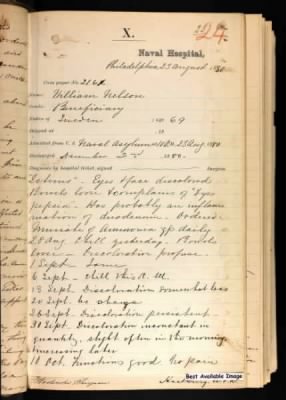 X.
24
Naval Hospital,
Philadelphia, 23 August 1880
Case paper No. 2164
Name: William Nelson
Grade: Beneficiary
Native of Sweden Age 69
Detached at
Admitted from U. S. Naval Asylum 23 Aug. 1880
Discharged December 2nd 1880.
Diagnosis by hospital ticket, signed Surgeon
"Icterus" - Eyes & face discolored
Bowels loose & complains of "Dys
pepsia". Has probably an inflam
mation of duodenum. Ordered
Muriate of Ammonia daily
28 Aug. Chill yesterday. Bowels
loose. Discoloration profuse.
1 Sept. Same
6 Sept. Chill this A. M.
13 Sept. Discoloration somewhat less
20 Sept. No change
26 Sept. Discoloration persistent
30 Sept. Discoloration inconstant in
quantity, slight often in the morning
& increasing later
10 Oct. Functions good. No pain
Best Available Image